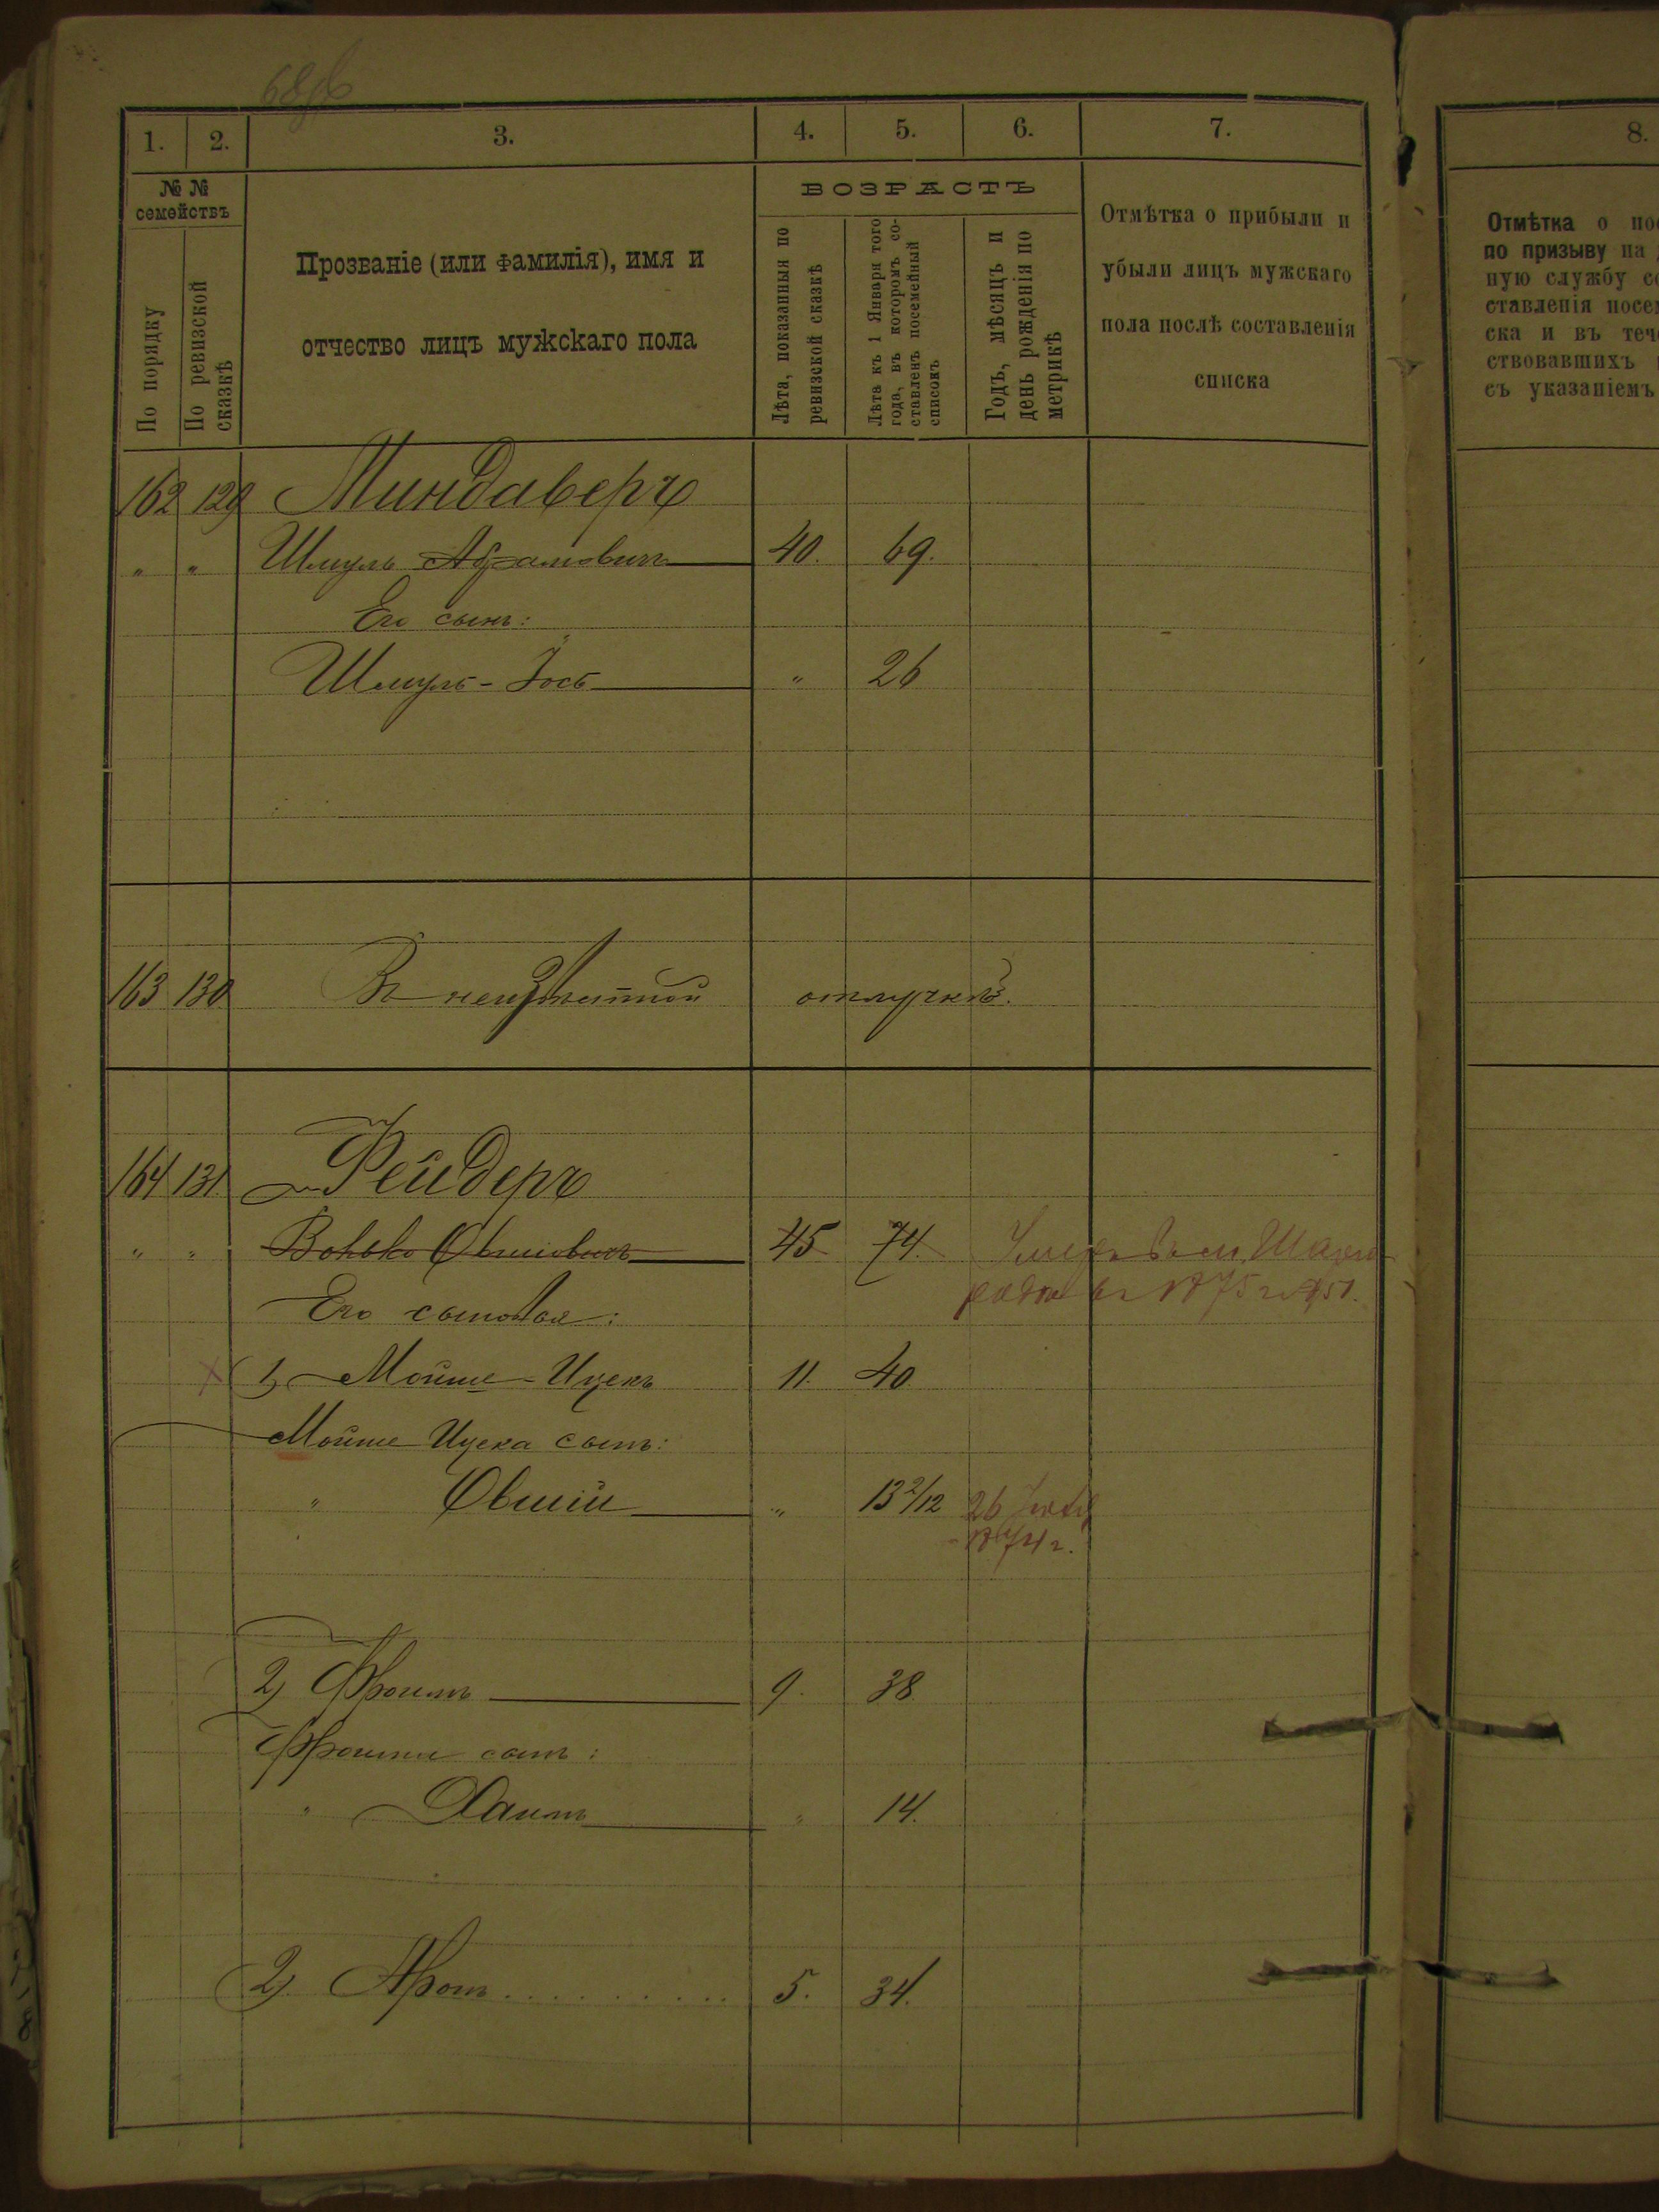 1. 2. 3. 4. 5. 6. 7. 8.
№ № семействъ
По порядку
По ревизской сказкѣ
Прозваніе (или фамилія), имя и
отчество лицъ мужскаго пола
ВОЗРАСТЪ
Лѣта, показанныя по ревизской сказкѣ
Лѣта къ 1 Января того года, въ которомъ составленъ посемейный списокъ
Годъ, мѣсяцъ и день рожденія по метрикѣ
Отмѣтка о прибыли и
убыли лицъ мужскаго
пола послѣ составленія
списка
Отмѣтка о
по призыву на
ную службу
ставленія
ска и въ
ствовавшихъ
съ указаніемъ
162 129 Миндаверъ
" " Шмуль Абрамовичъ 40. 69.
Его сынъ:
Шмуль-Іось " 26
163 130 Въ неизвѣстной отлучкѣ.
164 131 Фейдеръ
" " Волько Овшіовичъ 45 74. Умеръ
1875 г. 51.
Его сыновья:
1) Мойше-Ицекъ 11. 40
Мойше Ицека сынъ:
" Овшій " 13 2/12 26
1874 г.
2) Фроимъ 9. 38.
Фроима сынъ:
" Хаимъ " 14.
2) Аронъ 5. 34.